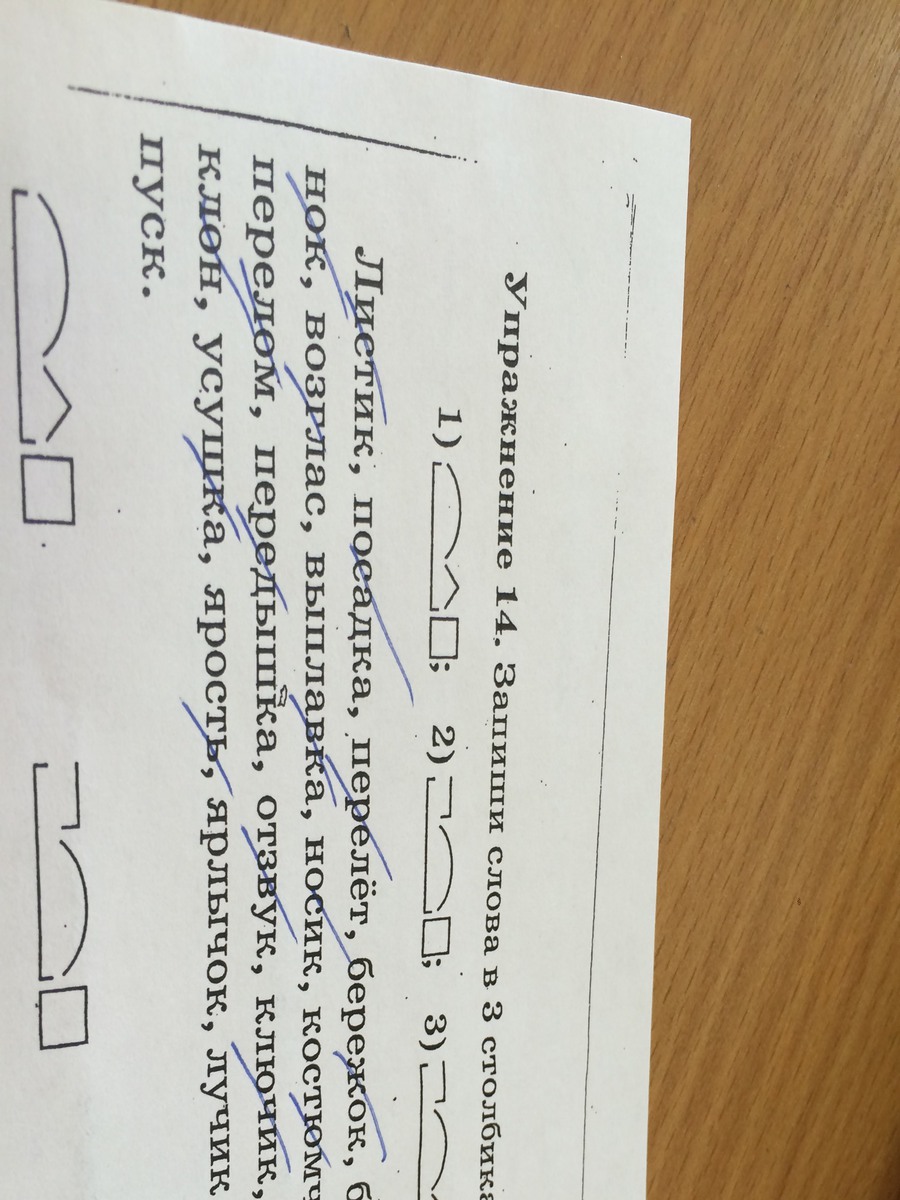 Упражнение 14. Запиши слова в 3 столбика
1) ; 2) ; 3)
Листик, посадка, перелёт, бережок, б
нок, возглас, выплавка, носик, костюмч
перелом, передышка, отзвук, ключик,
клон, усушка, ярость, ярлычок, лучик
пуск.